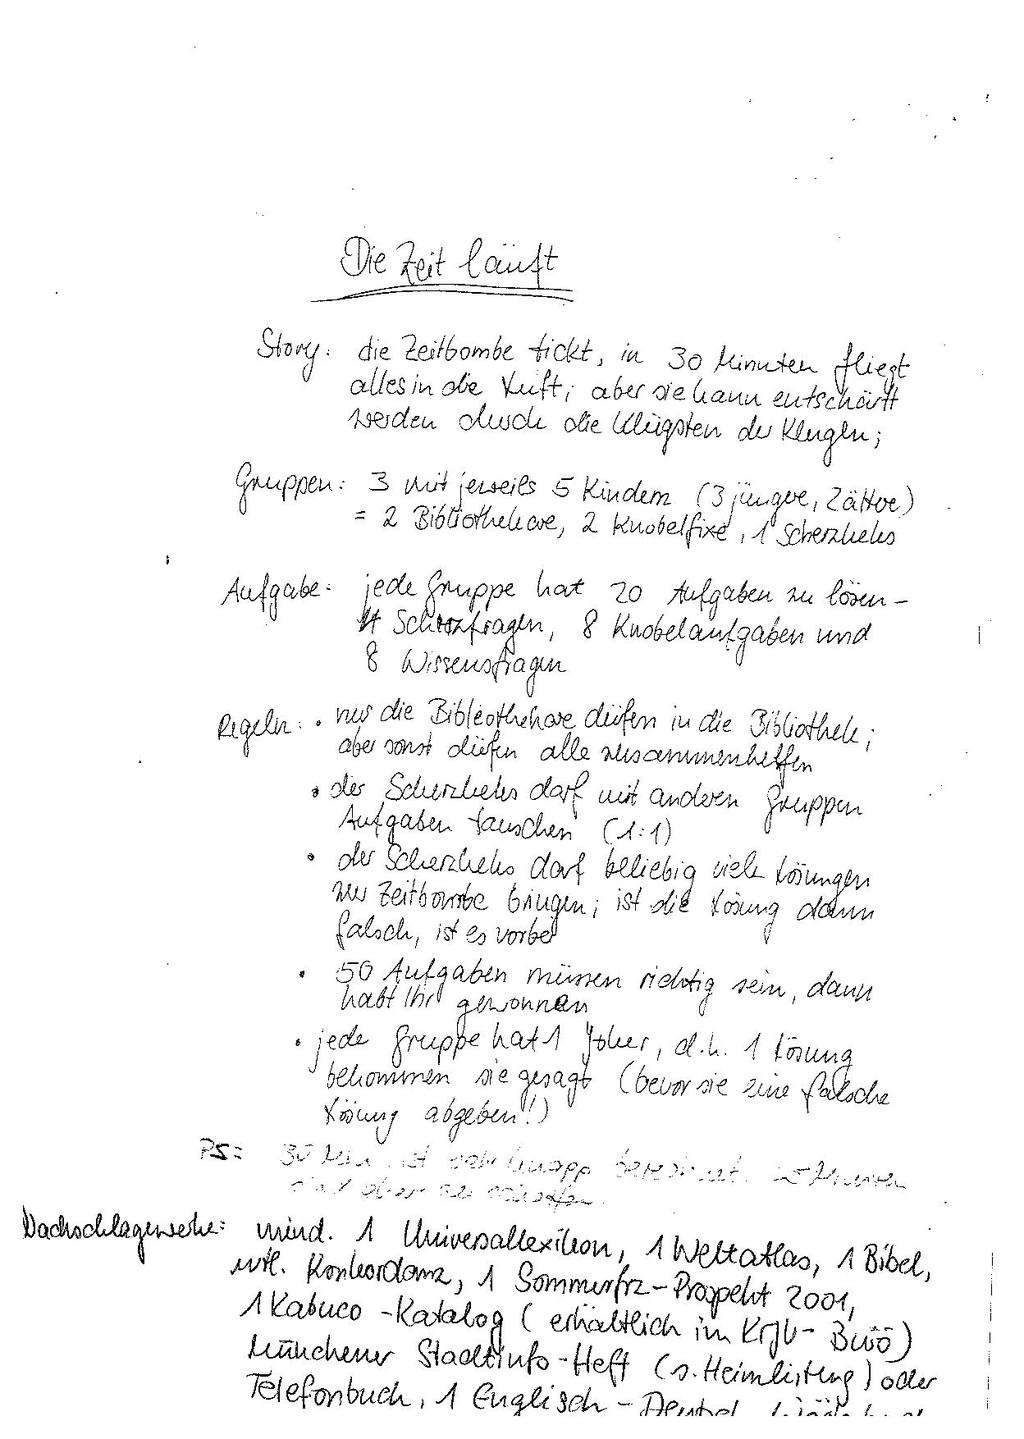 Die Zeit läuft
Story: die Zeitbombe tickt, in 30 Minuten fliegt
alles in die Luft; aber sie kann entschärft
werden durch die Klügsten der Klugen;
Gruppen: 3 mit jeweils 5 Kindern (3 jüngere, 2 ältere)
= 2 Bibliothekare, 2 Knobelfixe, 1 Scherzkeks
Aufgabe: jede Gruppe hat 20 Aufgaben zu lösen –
4 Scherzfragen, 8 Knobelaufgaben und
8 Wissensfragen
Regeln: • nur die Bibliothekare dürfen in die Bibliothek;
aber sonst dürfen alle zusammenhelfen
• der Scherzkeks darf mit anderen Gruppen
Aufgaben tauschen (1:1)
• der Scherzkeks darf beliebig viele Lösungen
zur Zeitbombe bringen; ist die Lösung dann
falsch, ist es vorbei
• 50 Aufgaben müssen richtig sein, dann
habt Ihr gewonnen
• jede Gruppe hat 1 Joker, d.h. 1 Lösung
bekommen sie gesagt (bevor sie eine falsche
Lösung abgeben!)
PS: 30 Min. ist sehr knapp berechnet.
Nachschlagewerke: mind. 1 Universallexikon, 1 Weltatlas, 1 Bibel,
evtl. Konkordanz, 1 Sommerfrz-Prospekt 2001,
1 Kabuco-Katalog (erhältlich im KrJU-Büro)
Münchener Stadtinfo-Heft (s. Heimleitung) oder
Telefonbuch, 1 Englisch-Deutsch